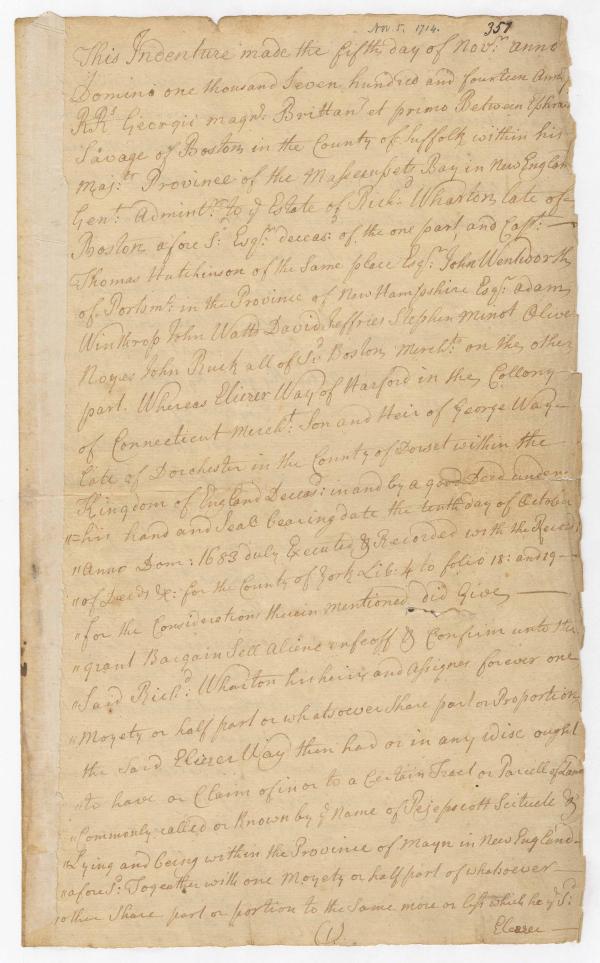 Nov. 5. 1714.
351
This Indenture made the fifth day of Nov.r anno
Domino one thousand Seven hundred and fourteen Annoq
R.Rs. Georgii magn: Brittan et primo Between Ephraim
Savage of Boston in the County of Suffolk within his
Maj:ts Province of the Massecusets Bay in New England
Gent: Admintr to ye Estate of Richd Wharton late of
Boston afore Sd. Esqr. deceasd of the one part and Capt:
Thomas Hutchinson of the Same place Esqr. John Wentworth
of Portsmo: in the Province of New Hampshire Esqr. adam
Winthrop John Watts David Jeffries Stephen Minot Olive
Noyes John Ruck all of Sd Boston Mercht: on the other
part. Whereas Eliezer Way of Harford in the Collony
of Connecticut Mercht: Son and Heir of George Way
late of Dorchester in the County of Dorset within the
Kingdom of England Deceasd: in and by a good Deed under
"=his hand and Seal bearing date the tenth day of October
"Anno Dom: 1683 duly Executed & Recorded with the Records
"of Deeds &c: for the County of York Lib: 4 to folio 18: and 19
"for the Considerations therein mentioned did Give
"grant Bargain Sell Aliene enfeoff & Confirm unto the
"Said Richd: Wharton his heirs and Assignes forever one
"Moyety or half part or whatsoever Share part or Proportion
the Said Eliezer Way then had or in any wise ought
"to have or Claim of in or to a Certain Tract or Parcell of Land
"Commonly called or Known by ye Name of Pejepscott Scituate &
"Lying and being within the Province of Mayn in New England
"afore Sd: Together with one Moyety or half part of whatsoever
other Share part or portion to the Same more or less which he ye Sd:
(1)
Eliezer